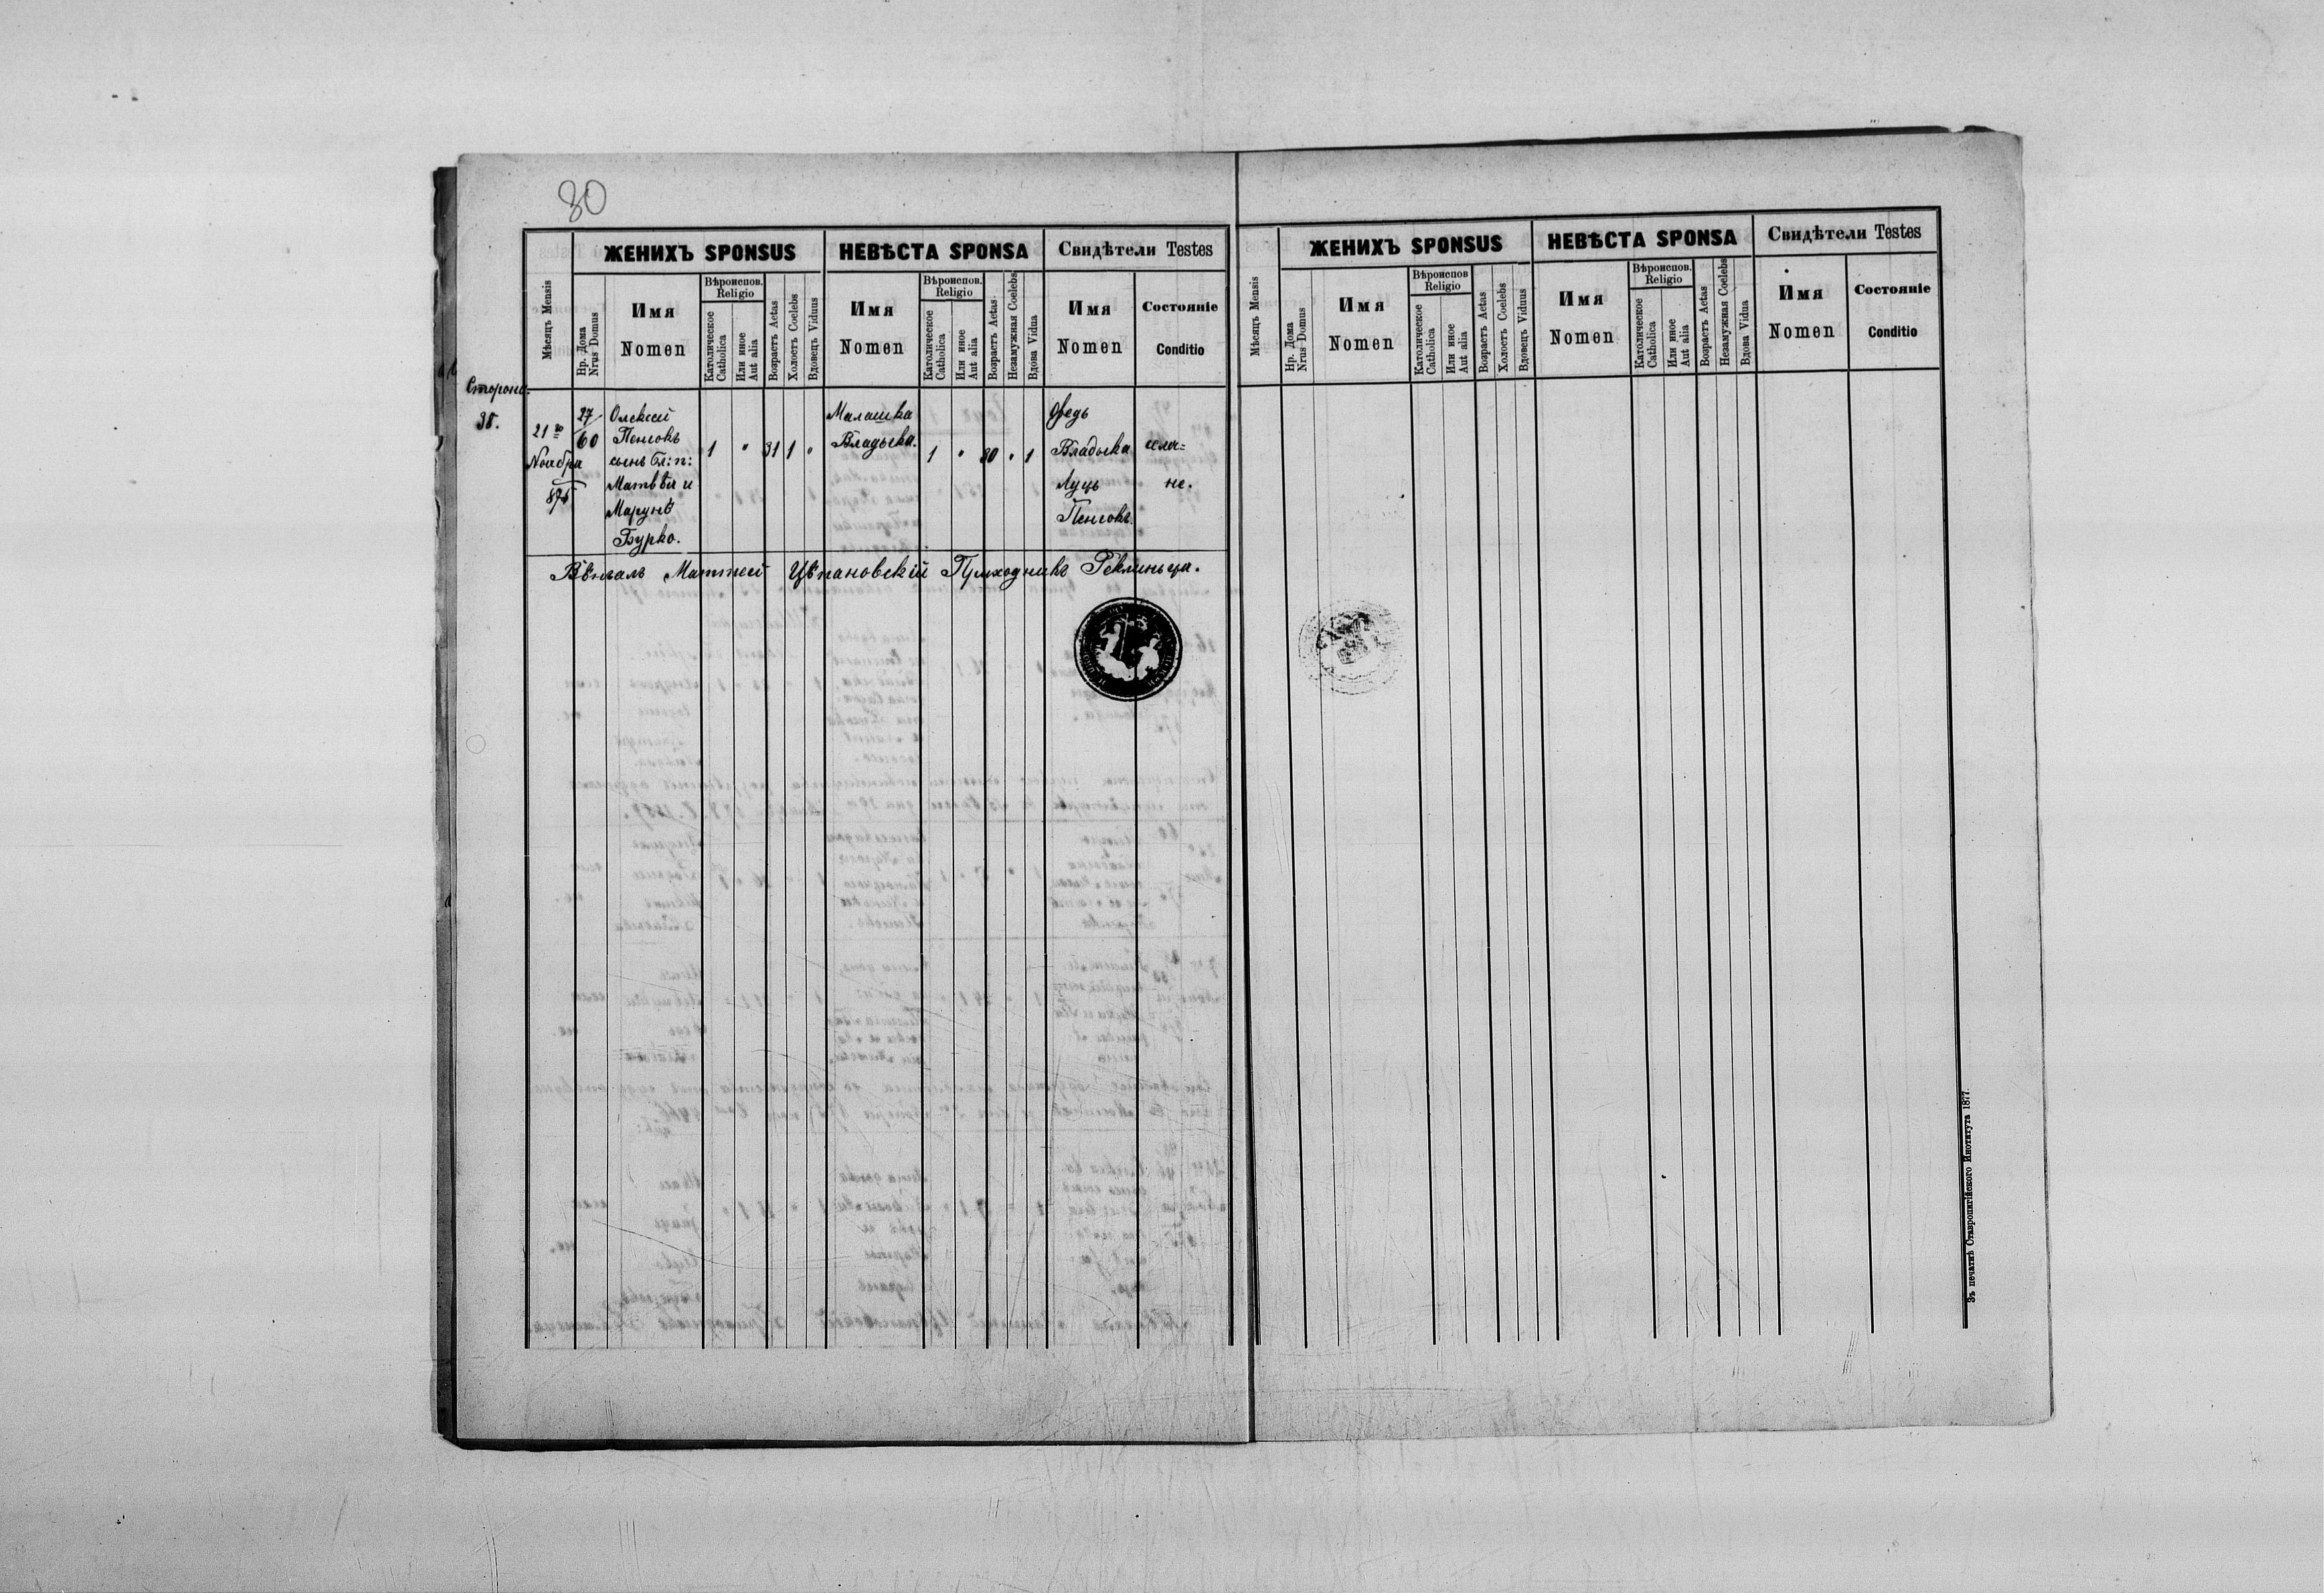 80
ЖЕНИХЪ SPONSUS
НЕВѢСТА SPONSA
Свидѣтели Testes
Мѣсяцъ Mensis
Нр. Дома
Nrus Domus
Имя
Nomen
Вѣроиспов.
Religio
Католическое
Catholica
Или иное
Aut alia
Возрастъ Aetas
Холостъ Coelebs
Вдовецъ Viduus
Имя
Nomen
Вѣроиспов.
Religio
Католическое
Catholica
Или иное
Aut alia
Возрастъ Aetas
Незамужная Coelebs
Вдова Vidua
Имя
Nomen
Состояніе
Conditio
Сторона
38.
21го
Ноября
27/60
Олексей
Пенюкъ
сынъ бл: п:
Матвѣя и
Марунѣ
Бурко.
1 " 31 1 "
Малашка
Владыка.
1 " 30 " 1
Федь
Владыка
Луць
Пенюкъ.
селя=
не.
Вѣнчалъ Маттей Цѣпановскій Приходникъ Реклиньца.
ЖЕНИХЪ SPONSUS
НЕВѢСТА SPONSA
Свидѣтели Testes
Мѣсяцъ Mensis
Нр. Дома
Nrus Domus
Имя
Nomen
Вѣроиспов
Religio
Католическое
Catholica
Или иное
Aut alia
Возрастъ Aetas
Холостъ Coelebs
Вдовецъ Viduus
Имя
Nomen
Вѣроиспов.
Religio
Католическое
Catholica
Или иное
Aut alia
Возрастъ Aetas
Незамужная Coelebs
Вдова Vidua
Имя
Nomen
Состояніе
Conditio
Зъ печатнѣ Ставропигійского Института 1877.